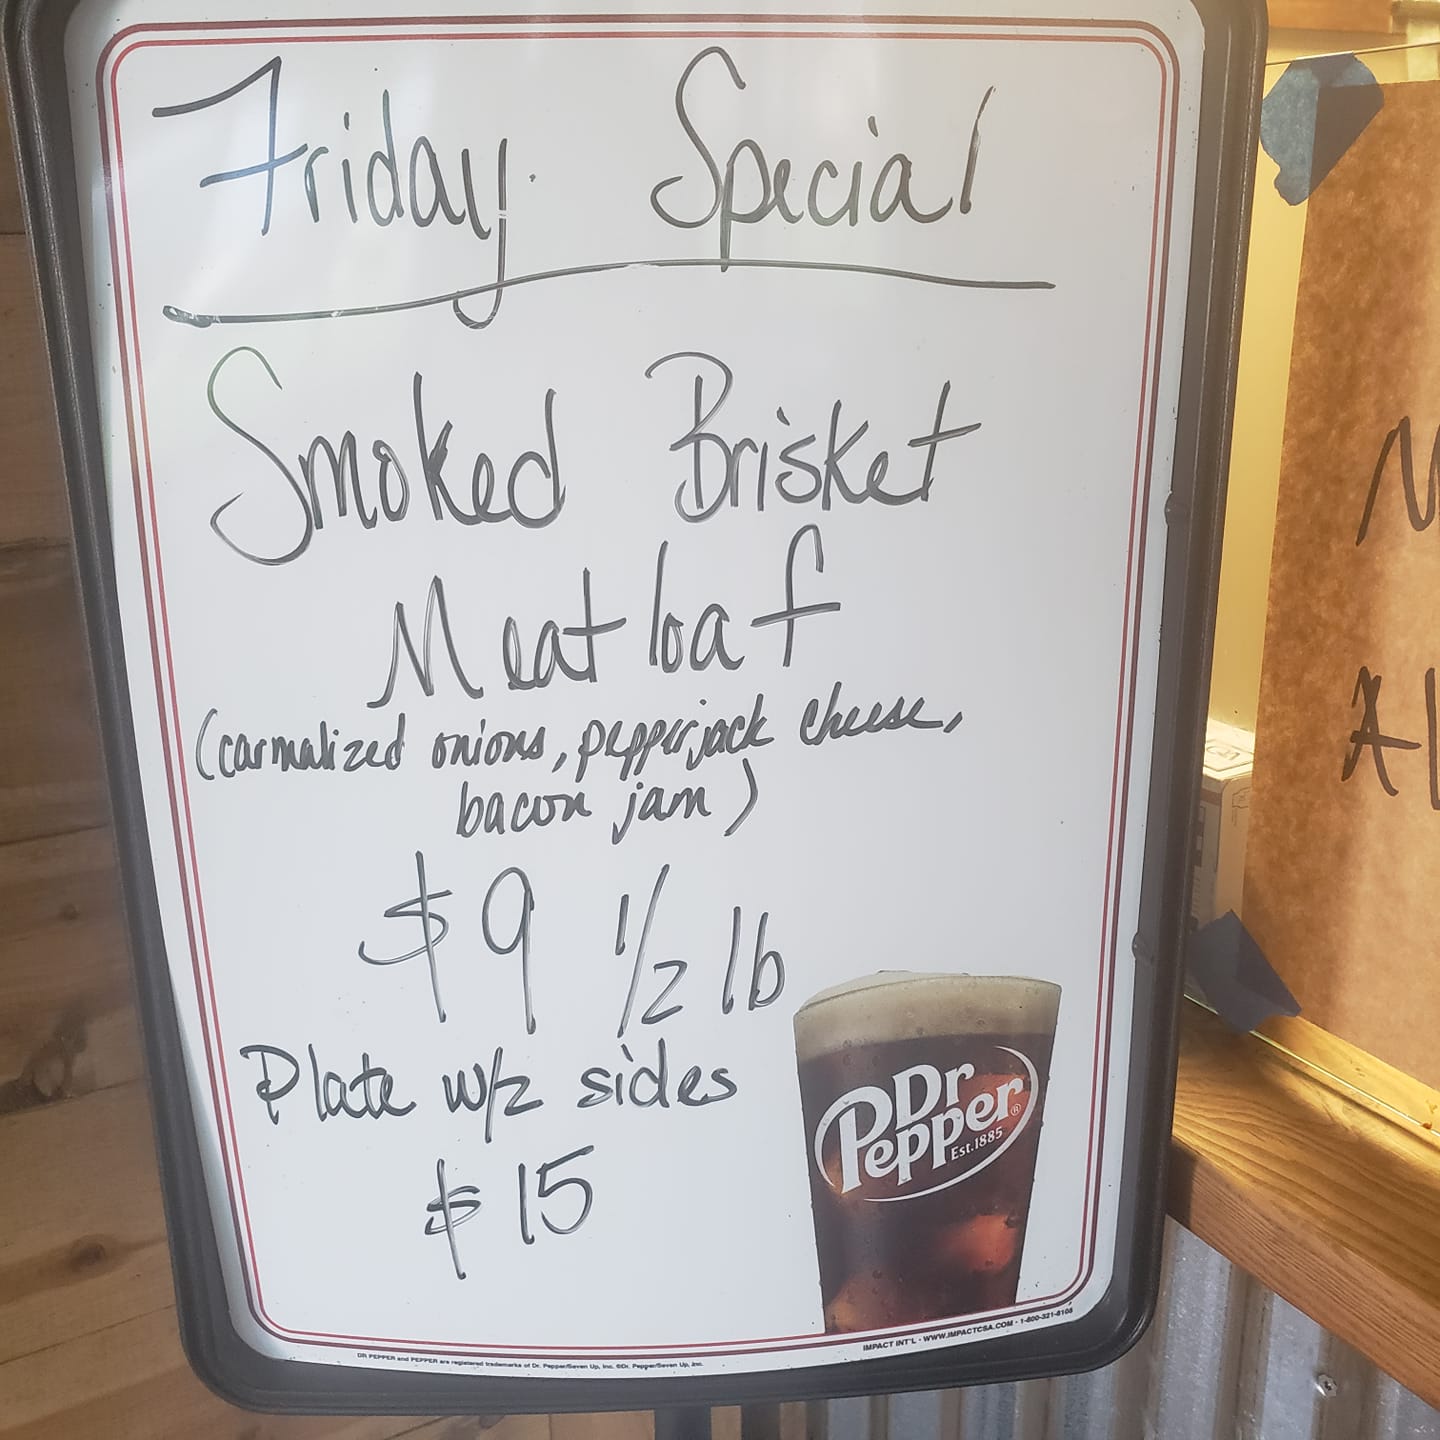 Friday Special
Smoked Brisket
Meatloaf
(carmalized onions, pepperjack cheese,
bacon jam)
$9 1/2 lb
Plate w/2 sides
$15
Dr
Pepper®
Est.1885
IMPACT INT'L - WWW.IMPACTCSA.COM - 1-800-321-8108
DR PEPPER and PEPPER are registered trademarks of Dr. Pepper/Seven Up, Inc. ©Dr. Pepper/Seven Up, Inc.